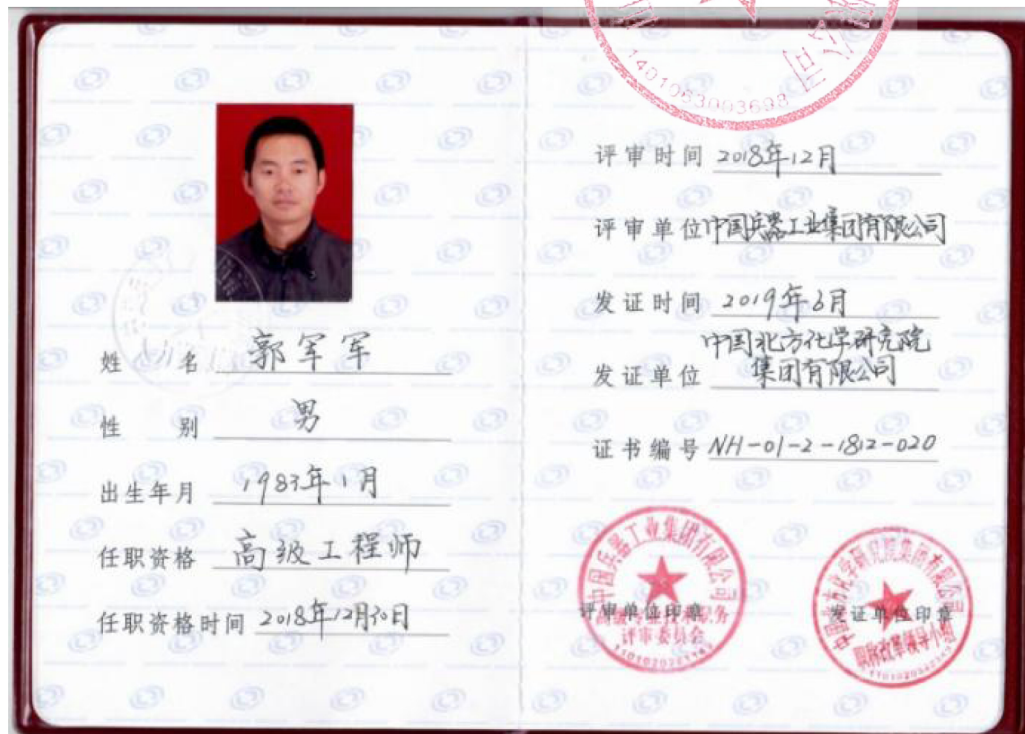 姓名 郭军军
性别 男
出生年月 1983年1月
任职资格 高级工程师
任职资格时间 2018年12月30日
1401053003698
评审时间 2018年12月
评审单位 中国兵器工业集团有限公司
发证时间 2019年3月
中国北方化学研究院
发证单位 集团有限公司
证书编号 NH-01-2-1812-020
中国兵器工业集团有限公司
评审单位印章
高级专业技术职务
评审委员会
中国北方化学研究院集团有限公司
发证单位印章
职称改革领导小组